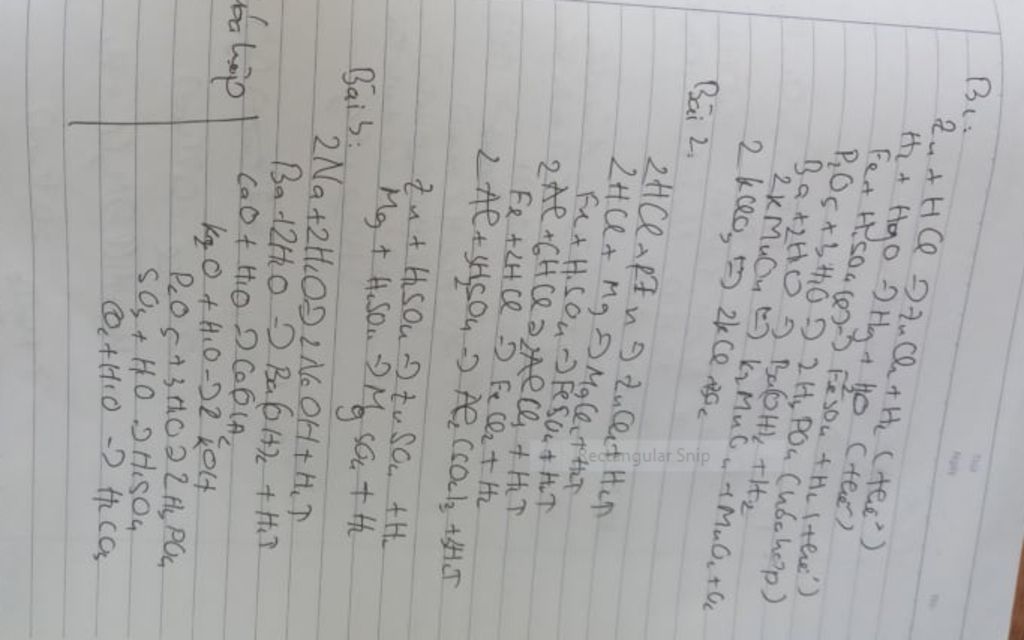 B1:
Zn + HCl => ZnCl2 + H2 (thế)
H2 + HgO => Hg + H2O (thế)
Fe + H2SO4 => FeSO4 + H2 (thế)
P2O5 + 3H2O => 2H3PO4 (hóa hợp)
Ba + 2H2O => Ba(OH)2 + H2
2KMnO4 => K2MnO4 + MnO2 + O2
2KClO3 => 2KCl +
Bài 2:
2HCl + Zn => ZnCl2 + H2↑
2HCl + Mg => MgCl2 + H2↑
Fe + H2SO4 => FeSO4 + H2↑
2Al + 6HCl => 2AlCl3 + H2↑
Fe + 2HCl => FeCl2 + H2
2Al + H2SO4 => Al2(SO4)3 + H2↑
Zn + H2SO4 => ZnSO4 + H2
Mg + H2SO4 => MgSO4 + H2
Bài 3:
2Na + 2H2O => 2NaOH + H2↑
Ba + 2H2O => Ba(OH)2 + H2↑
CaO + H2O => Ca(OH)2
hóa hợp
K2O + H2O => 2KOH
P2O5 + 3H2O => 2H3PO4
SO3 + H2O => H2SO4
Rectangular Snip